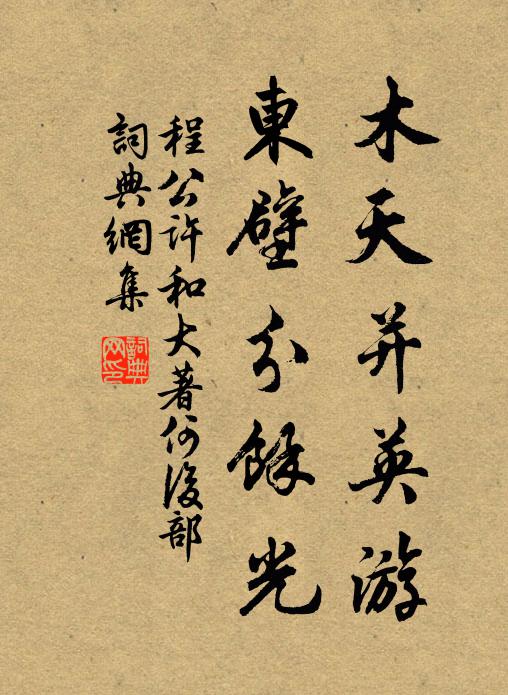 木天并英游
東壁分餘光
程公许和大著何後部
詞典網集
詞典网印